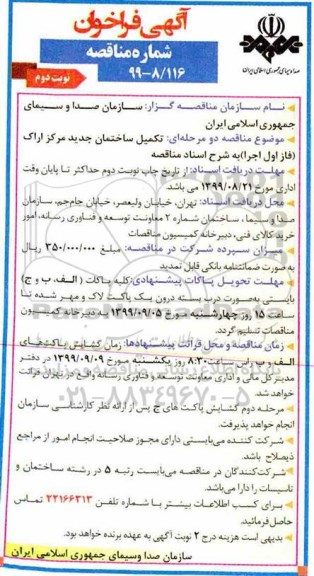 آگهی فراخوان
شماره مناقصه
۹۹-۸/۱۱۶
نوبت دوم
صدا و سیمای جمهوری اسلامی ایران
نام سازمان مناقصه گزار: سازمان صدا و سیمای
جمهوری اسلامی ایران
موضوع مناقصه دو مرحله‌ای: تکمیل ساختمان جدید مرکز اراک
(فاز اول اجرا) به شرح اسناد مناقصه
مهلت دریافت اسناد: از تاریخ چاپ نوبت دوم حداکثر تا پایان وقت
اداری مورخ ۱۳۹۹/۰۸/۲۱ می باشد
محل دریافت اسناد: تهران، خیابان ولیعصر، خیابان جام‌جم، سازمان
صدا و سیما، ساختمان شماره ۲ معاونت توسعه و فناوری رسانه، امور
خرید کالای فنی، دبیرخانه کمیسیون مناقصات
میزان سپرده شرکت در مناقصه: مبلغ ۳۵۰/۰۰۰/۰۰۰ ریال
به صورت ضمانتنامه بانکی قابل تمدید
مهلت تحویل پاکات پیشنهادی: کلیه پاکات (الف، ب و ج)
بایستی به‌صورت درب بسته درون یک پاکت لاک و مهر شده تا
ساعت ۱۵ روز چهارشنبه مورخ ۱۳۹۹/۰۹/۰۵ به دبیرخانه کمیسیون
مناقصات تسلیم گردد.
زمان مناقصه و محل قرائت پیشنهادها: زمان گشایش پاکت‌های
الف و ب راس ساعت ۸:۳۰ روز یکشنبه مورخ ۱۳۹۹/۰۹/۰۹ در دفتر
مدیر کل مالی و اداری معاونت توسعه و فناوری رسانه واقع در تهران قرائت
خواهد شد.
مرحله دوم گشایش پاکت های ج پس از ارائه نظر کارشناسی سازمان
انجام خواهد پذیرفت.
شرکت کننده می‌بایستی دارای مجوز صلاحیت انجام امور از مراجع
ذیصلاح باشد.
شرکت‌کنندگان در مناقصه می‌بایست رتبه ۵ در رشته ساختمان و
تاسیسات را دارا می‌باشد.
برای کسب اطلاعات بیشتر با شماره تلفن ۲۲۱۶۶۳۱۳ تماس
حاصل فرمائید.
بدیهی است هزینه درج ۲ نوبت آگهی به عهده برنده خواهد بود.
سازمان صدا و سیمای جمهوری اسلامی ایران
۰۲۱-۸۸۳۴۹۶۷۰-۵